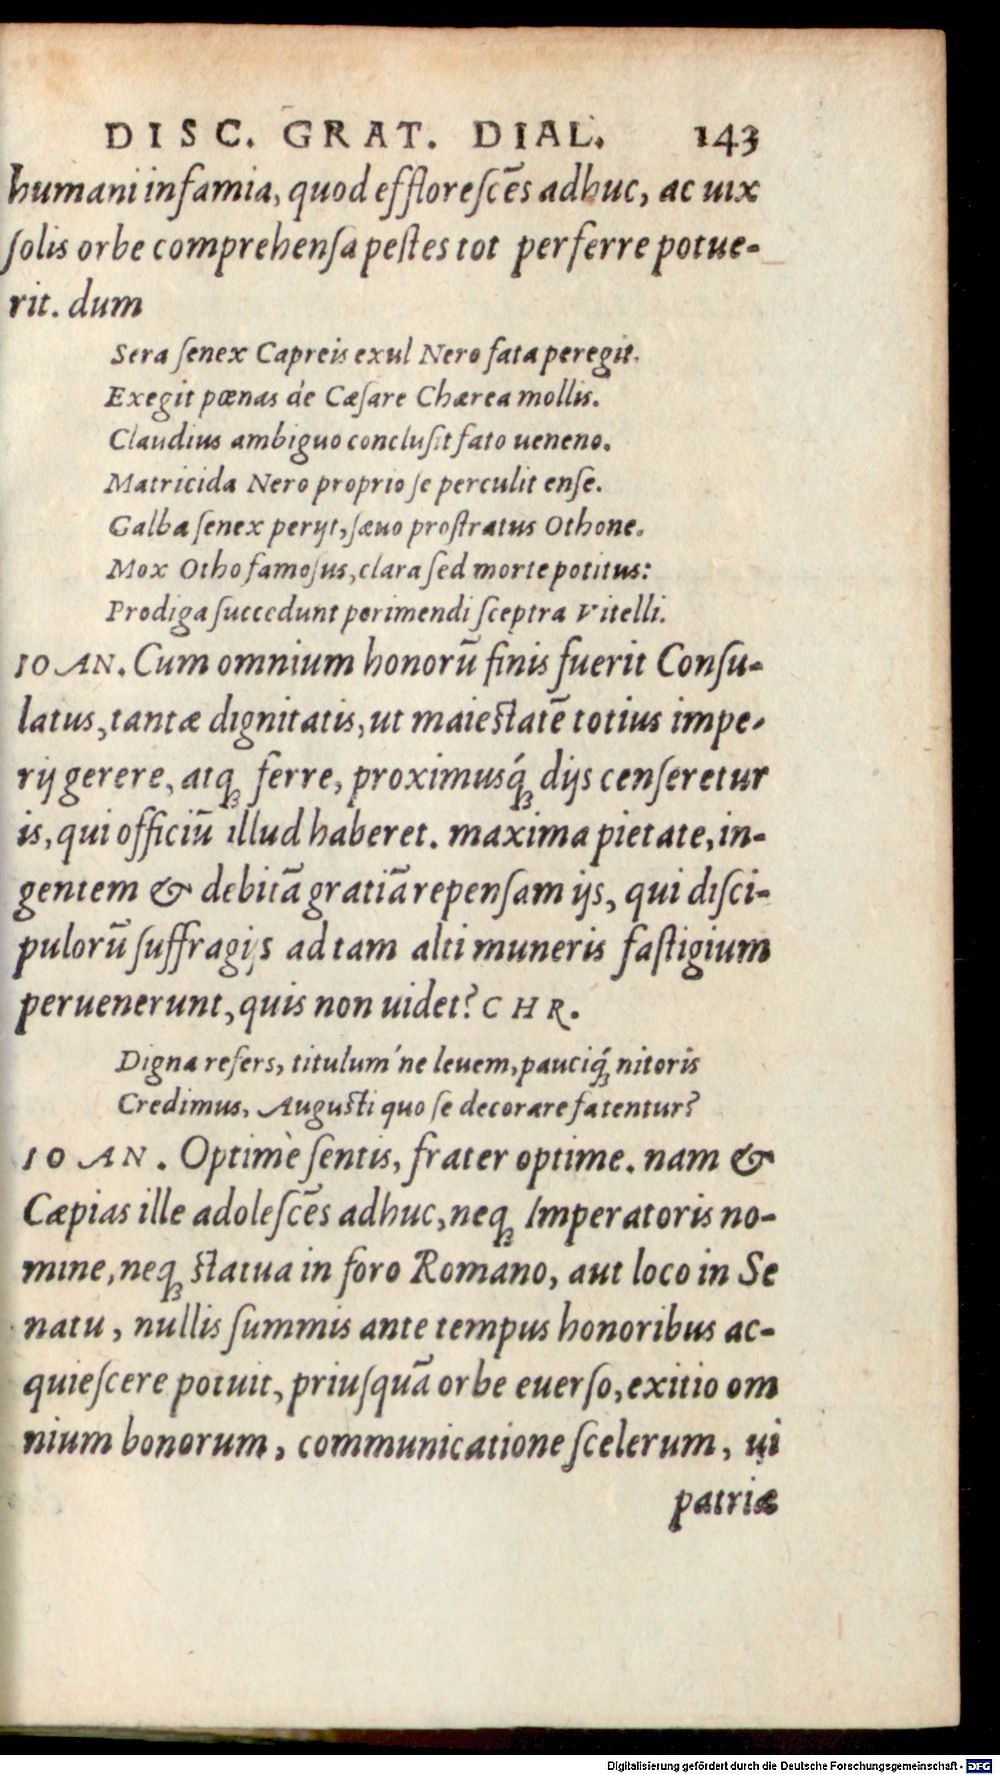 DISC. GRAT. DIAL. 143
humani infamia, quod effloreſcẽs adhuc, ac uix
ſolis orbe comprehenſa peſtes tot perferre potue-
rit. dum
Sera ſenex Capreis exul Nero fata peregit.
Exegit pœnas de Cæſare Chærea mollis.
Claudius ambiguo concluſit fato ueneno.
Matricida Nero proprio ſe perculit enſe.
Galba ſenex perijt, ſæuo proſtratus Othone.
Mox Otho famoſus, clara ſed morte potitus:
Prodiga ſuccedunt perimendi ſceptra Vitelli.
IOAN. Cum omnium honorũ finis fuerit Conſu-
latus, tantæ dignitatis, ut maieſtatẽ totius impe-
rij gerere, atqꝫ ferre, proximusq́ꝫ dijs cenſeretur
is, qui officiũ illud haberet. maxima pietate, in-
gentem & debitã gratiã repenſam ijs, qui diſci-
pulorũ ſuffragijs ad tam alti muneris faſtigium
peruenerunt, quis non uidet? CHR.
Digna refers, titulum'ne leuem, pauciq́ꝫ nitoris
Credimus, Auguſti quo ſe decorare fatentur?
IOAN. Optimè ſentis, frater optime. nam &
Cæpias ille adoleſcẽs adhuc, neqꝫ Imperatoris no-
mine, neqꝫ ſtatua in foro Romano, aut loco in Se
natu, nullis ſummis ante tempus honoribus ac-
quieſcere potuit, priuſquã orbe euerſo, exitio om
nium bonorum, communicatione ſcelerum, ui
patriæ
Digitalisierung gefördert durch die Deutsche Forschungsgemeinschaft - DFG